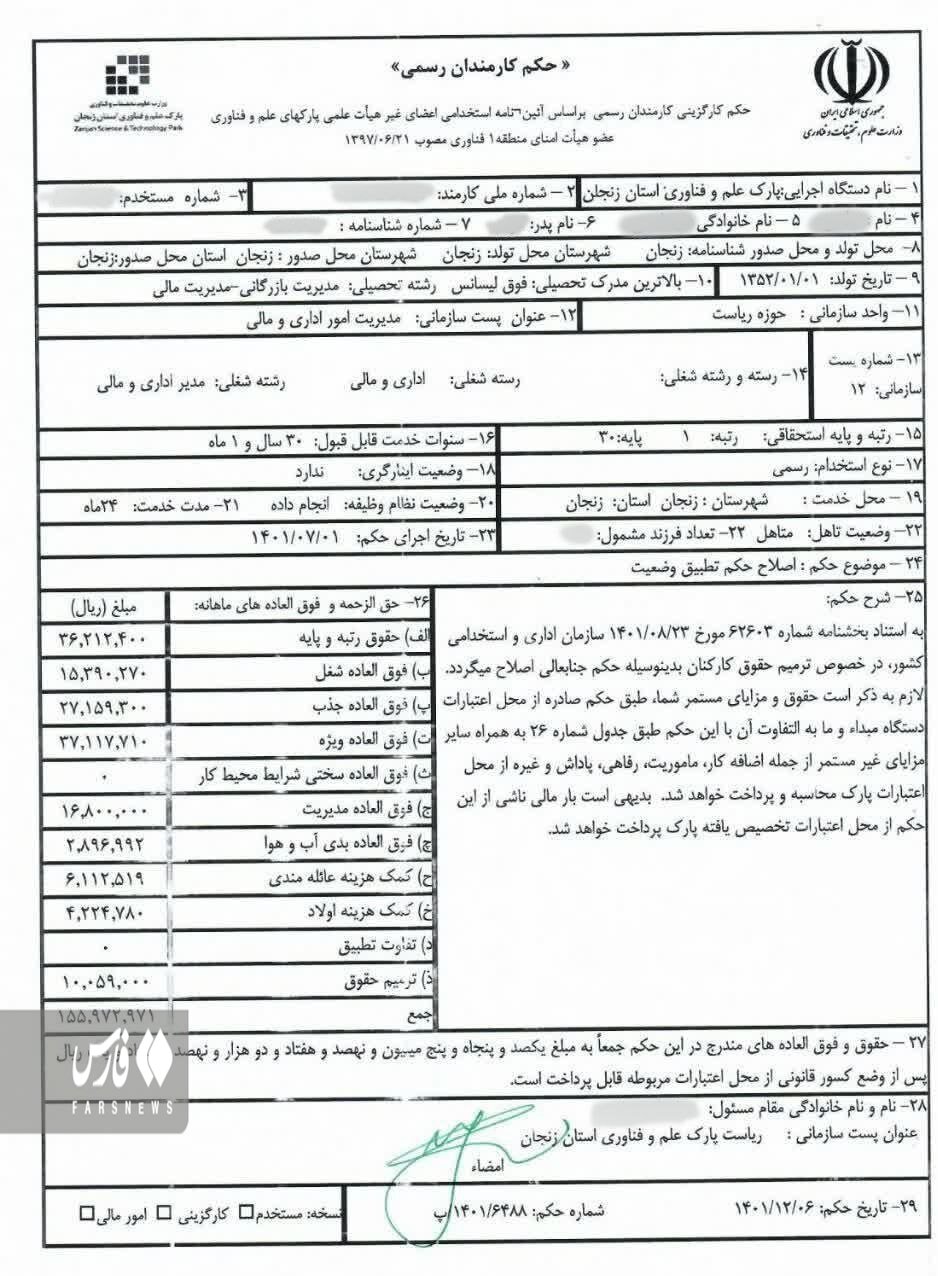 « حکم کارمندان رسمی»
جمهوری اسلامی ایران
وزارت علوم، تحقیقات و فناوری
وزارت علوم تحقیقات و فناوری
پارک علم و فناوری استان زنجان
Zanjan Science & Technology Park
حکم کارگزینی کارمندان رسمی براساس آئین نامه استخدامی اعضای غیر هیأت علمی پارکهای علم و فناوری
عضو هیأت امنای منطقه۱ فناوری مصوب ۱۳۹۷/۰۶/۲۱
۱- نام دستگاه اجرایی:پارک علم و فناوری استان زنجان ۲- شماره ملی کارمند: ۳- شماره مستخدم:
۴- نام ۵- نام خانوادگی ۶- نام پدر: ۷- شماره شناسنامه :
۸- محل تولد و محل صدور شناسنامه: زنجان شهرستان محل تولد: زنجان شهرستان محل صدور : زنجان استان محل صدور:زنجان
۹- تاریخ تولد: ۱۳۵۲/۰۱/۰۱ ۱۰- بالاترین مدرک تحصیلی: فوق لیسانس رشته تحصیلی: مدیریت بازرگانی-مدیریت مالی
۱۱- واحد سازمانی : حوزه ریاست ۱۲- عنوان پست سازمانی: مدیریت امور اداری و مالی
۱۳- شماره پست سازمانی: ۱۲ ۱۴- رسته و رشته شغلی: رسته شغلی: اداری و مالی رشته شغلی: مدیر اداری و مالی
۱۵- رتبه و پایه استحقاقی: رتبه: ۱ پایه:۳۰ ۱۶- سنوات خدمت قابل قبول: ۳۰ سال و ۱ ماه
۱۷- نوع استخدام: رسمی ۱۸- وضعیت ایثارگری: ندارد
۱۹- محل خدمت : شهرستان : زنجان استان: زنجان ۲۰- وضعیت نظام وظیفه: انجام داده ۲۱- مدت خدمت: ۲۴ماه
۲۲- وضعیت تاهل: متاهل ۲۲- تعداد فرزند مشمول: ۲۳- تاریخ اجرای حکم: ۱۴۰۱/۰۷/۰۱
۲۴- موضوع حکم : اصلاح حکم تطبیق وضعیت
۲۵- شرح حکم:
به استناد بخشنامه شماره ۶۲۶۰۳ مورخ ۱۴۰۱/۰۸/۲۳ سازمان اداری و استخدامی
کشور، در خصوص ترمیم حقوق کارکنان بدینوسیله حکم جنابعالی اصلاح میگردد.
لازم به ذکر است حقوق و مزایای مستمر شما، طبق حکم صادره از محل اعتبارات
دستگاه مبداء و ما به التفاوت آن با این حکم طبق جدول شماره ۲۶ به همراه سایر
مزایای غیر مستمر از جمله اضافه کار، ماموریت، رفاهی، پاداش و غیره از محل
اعتبارات پارک محاسبه و پرداخت خواهد شد. بدیهی است بار مالی ناشی از این
حکم از محل اعتبارات تخصیص یافته پارک پرداخت خواهد شد.
۲۶- حق الزحمه و فوق العاده های ماهانه: مبلغ (ریال)
الف) حقوق رتبه و پایه ۳۶,۲۱۲,۴۰۰
ب) فوق العاده شغل ۱۵,۳۹۰,۲۷۰
پ) فوق العاده جذب ۲۷,۱۵۹,۳۰۰
ت) فوق العاده ویژه ۳۷,۱۱۷,۷۱۰
ث) فوق العاده سختی شرایط محیط کار ۰
ج) فوق العاده مدیریت ۱۶,۸۰۰,۰۰۰
چ) فوق العاده بدی آب و هوا ۲,۸۹۶,۹۹۲
ح) کمک هزینه عائله مندی ۶,۱۱۲,۵۱۹
خ) کمک هزینه اولاد ۴,۲۲۴,۷۸۰
د) تفاوت تطبیق ۰
ذ) ترمیم حقوق ۱۰,۰۵۹,۰۰۰
جمع ۱۵۵,۹۷۲,۹۷۱
۲۷- حقوق و فوق العاده های مندرج در این حکم جمعاً به مبلغ یکصد و پنجاه و پنج میلیون و نهصد و هفتاد و دو هزار و نهصد ریال
پس از وضع کسور قانونی از محل اعتبارات مربوطه قابل پرداخت است.
۲۸- نام و نام خانوادگی مقام مسئول:
عنوان پست سازمانی : ریاست پارک علم و فناوری استان زنجان
امضاء
۲۹- تاریخ حکم: ۱۴۰۱/۱۲/۰۶ شماره حکم: ۱۴۰۱/۶۴۸۸/پ نسخه: مستخدم □ کارگزینی □ امور مالی □
فارس
FARSNEWS